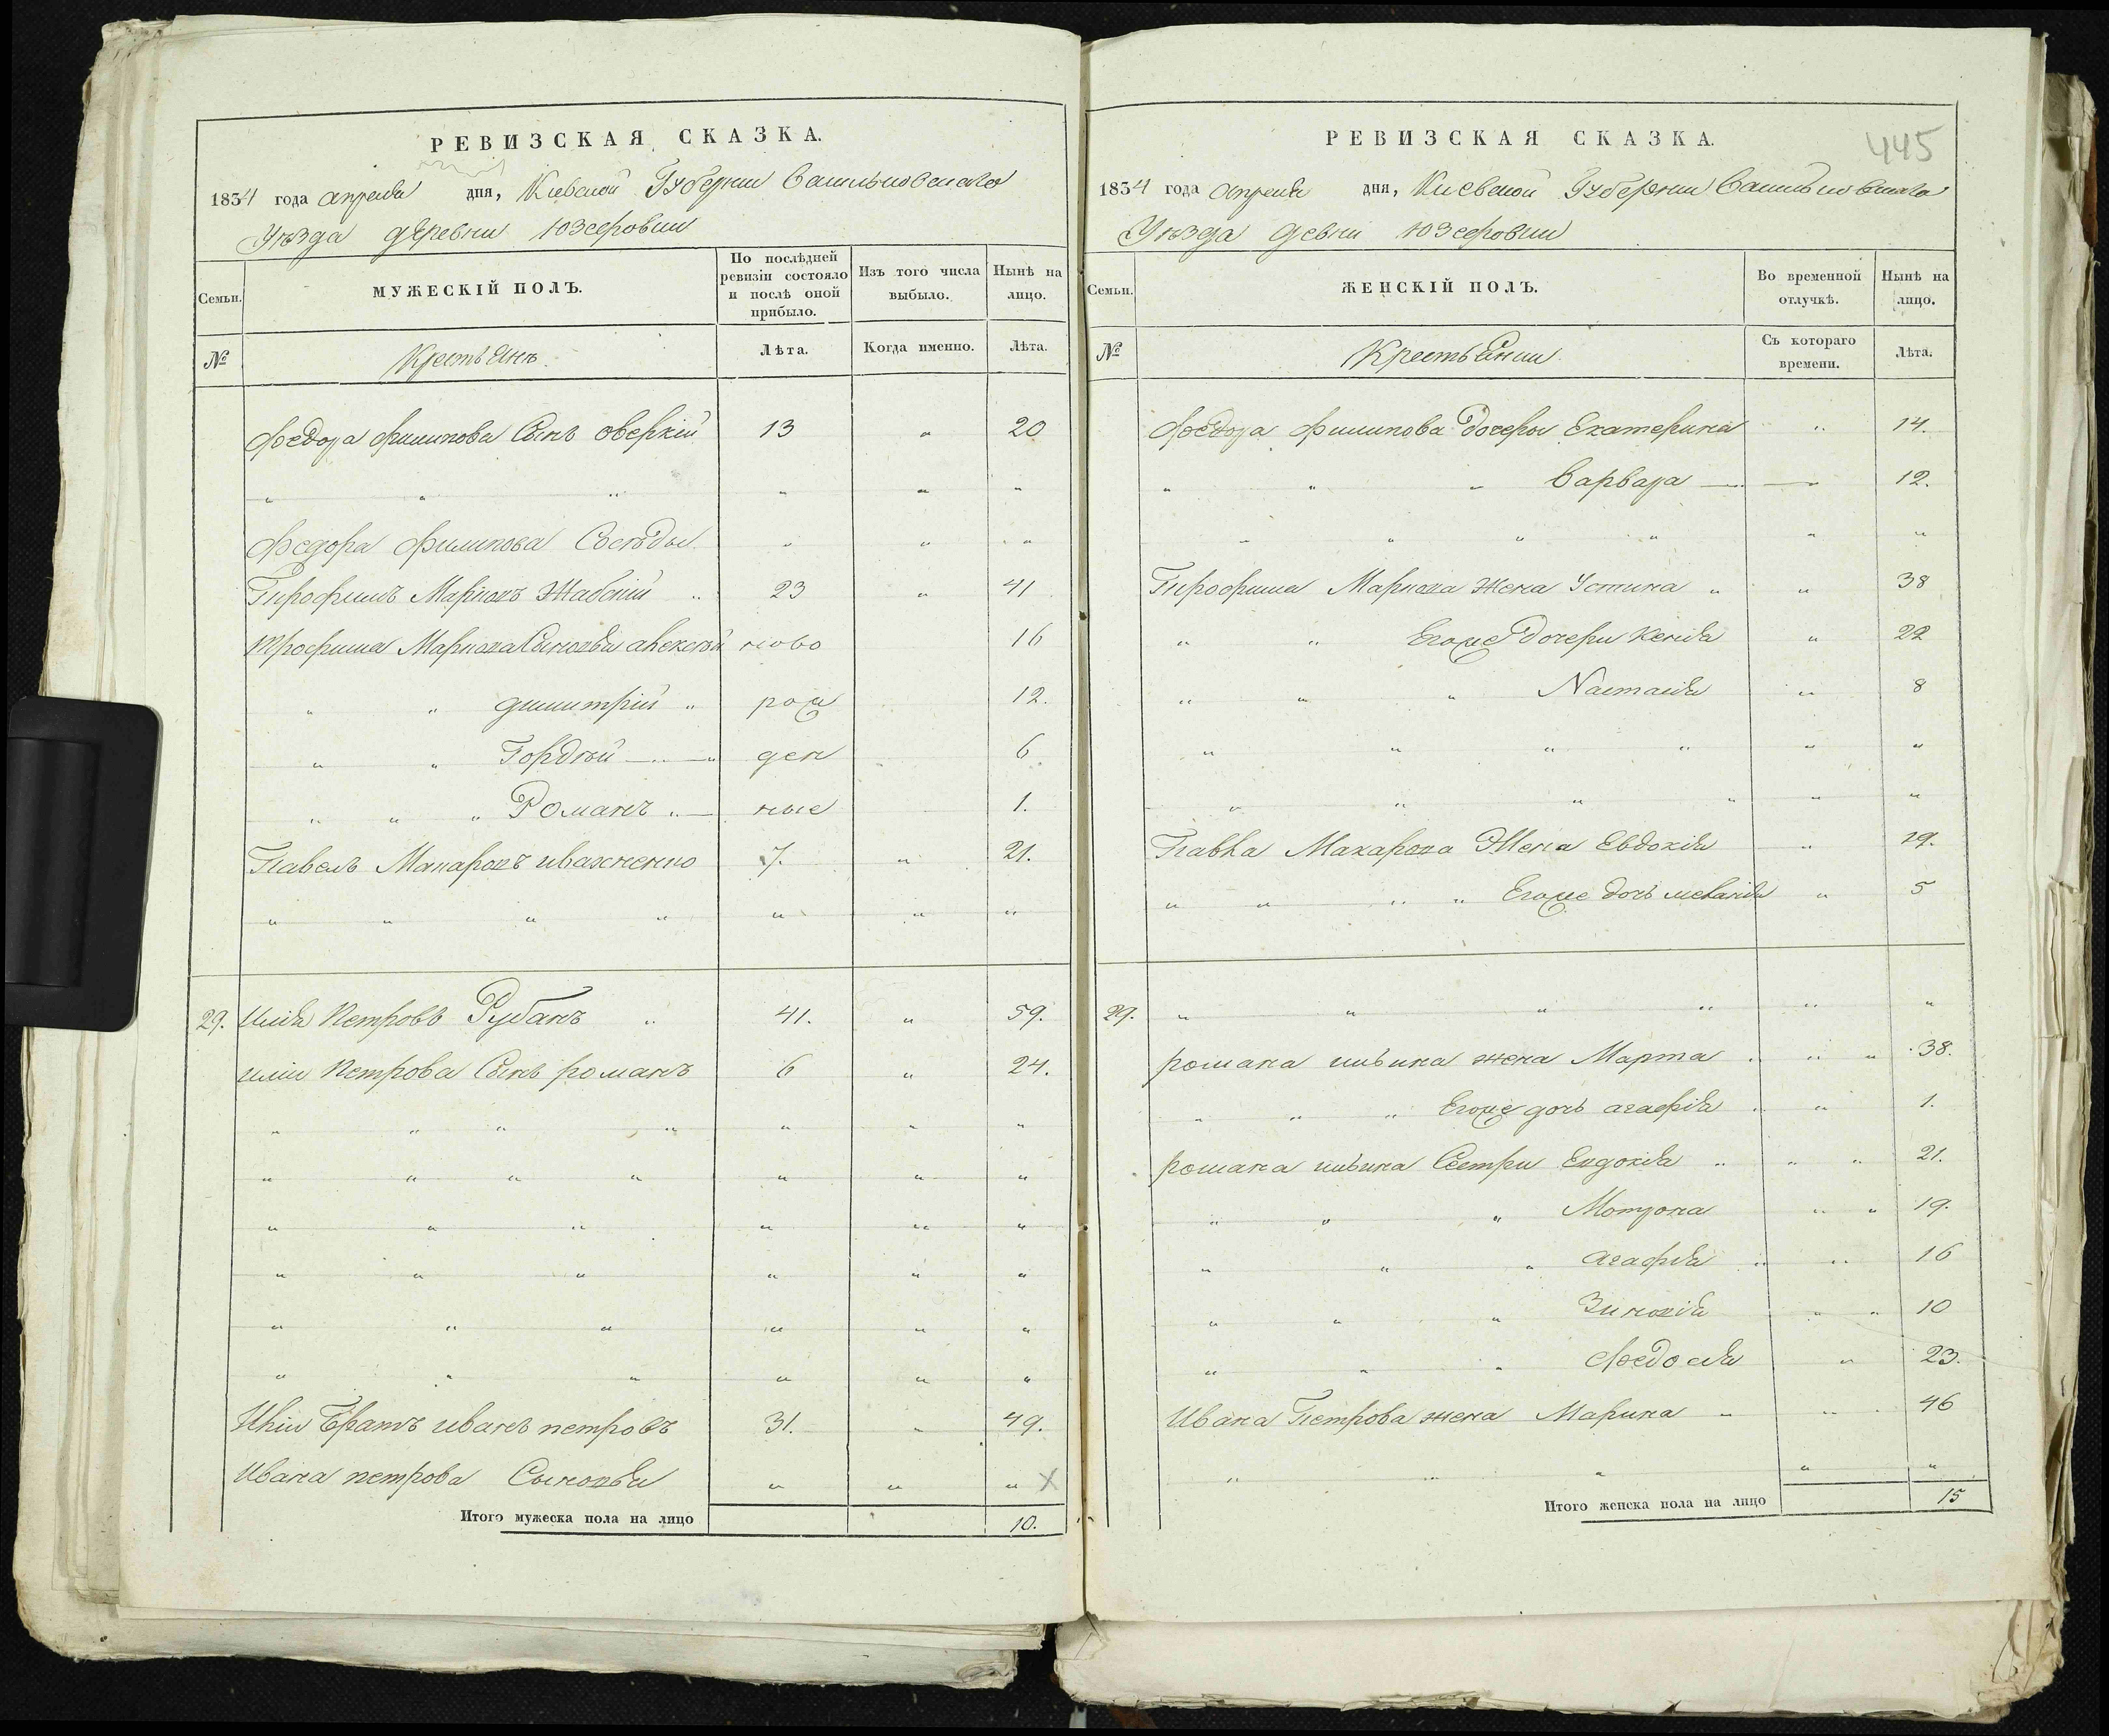 РЕВИЗСКАЯ СКАЗКА.
1834 года апреля дня, Киевской Губернии Васильковскаго
Уѣзда деревни Юзефовки
Семьи. МУЖЕСКІЙ ПОЛЪ. По послѣдней ревизіи состояло и послѣ оной прибыло. Изъ того числа выбыло. Нынѣ на лицо.
№ Крестьянъ Лѣта. Когда именно. Лѣта.
Федора Филипова Сынъ Оверкій 13 " 20
" " " " " "
Федора Филипова Сосѣды " " "
Трофимъ Марковъ Жабскій " 23 " 41
Трофима Маркова Сыновья алексѣй ново 16
" " димитрій " рож 12.
" " Гордѣй " ден 6
" " " Романъ " ные 1.
Павелъ Макаровъ ивахненко 7. " 21.
" " " " " " "
29. Илія Петровъ Рубанъ " 41. " 59.
иліи Петрова Сынъ романъ 6 " 24.
" " " " " " "
" " " " " " "
" " " " " "
" " " " " "
" " " " " "
" " " " " "
Иліи Братъ иванъ петровъ 31. " 49.
Ивана петрова Сыновья " " " X
Итого мужеска пола на лицо 10.
РЕВИЗСКАЯ СКАЗКА. 445
1834 года апреля дня, Киевской Губернии Васильковскаго
Уѣзда девни Юзефовки
Семьи. ЖЕНСКІЙ ПОЛЪ. Во временной отлучкѣ. Нынѣ на лицо.
№ Крестьянки Съ котораго времени. Лѣта.
Федора Филипова дочеры Екатерина " 14.
" " " Варвара 12.
" " " " " "
Трофима Маркова жена Устина " " 38
" " Егоже дочери Ксенія " 22
" " " Настасія " 8
" " " " " "
" " " " " "
Павла Макарова Жена Евдокія " 29.
" " " " Егоже дочь меланія " 5
29. " " " " " "
романа ильина жена Марта " " " 38.
" " " Егоже дочь агафія " " 1.
романа ильина Сестри Евдокія " " " 21.
" " " Мотрона " " 19.
" " " Агафія " " 16
" " " Зиновія " " 10
" " " Федосія " 23.
Ивана Петрова жена Марина " " 46
" " " " "
Итого женска пола на лицо 15